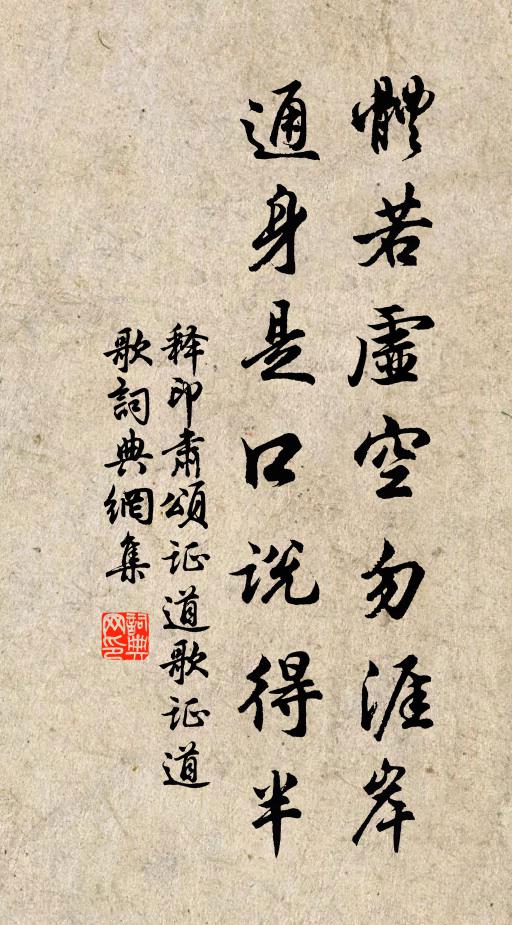 體若虛空勿涯岸
通身是口说得半
释印肃頌证道歌证道
歌詞典網集
詞典网印